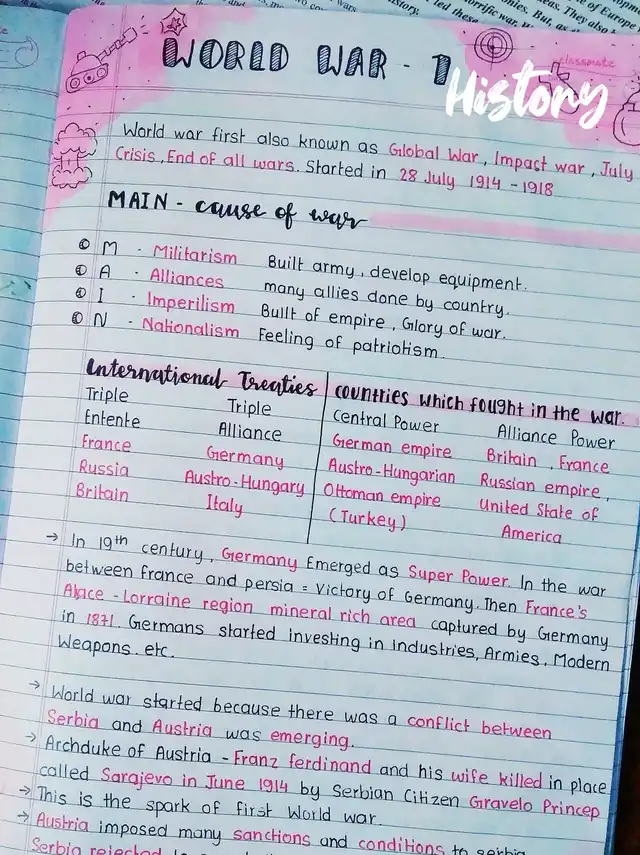 WORLD WAR - 1
classmate
History
World war first also known as Global War, Impact war, July
Crisis, End of all wars. Started in 28 July 1914 - 1918
MAIN - cause of war
M - Militarism Built army, develop equipment.
A - Alliances many allies done by country.
I - Imperilism Built of empire, Glory of war.
N - Nationalism Feeling of patriotism.
International Treaties
Triple Entente Triple Alliance
France Germany
Russia Austro-Hungary
Britain Italy
countries which fought in the war.
Central Power Alliance Power
German empire Britain, France
Austro-Hungarian Russian empire,
Ottoman empire United State of
(Turkey) America
→ In 19th century, Germany Emerged as Super Power. In the war
between france and persia = Victory of Germany. Then France's
Alace - Lorraine region mineral rich area captured by Germany
in 1871. Germans started investing in Industries, Armies, Modern
Weapons. etc.
→ World war started because there was a conflict between
Serbia and Austria was emerging.
→ Archduke of Austria - Franz ferdinand and his wife killed in place
called Sarajevo in June 1914 by Serbian Citizen Gravelo Princep
→ This is the spark of first World war.
→ Austria imposed many sanctions and conditions to serbia
Serbia rejected